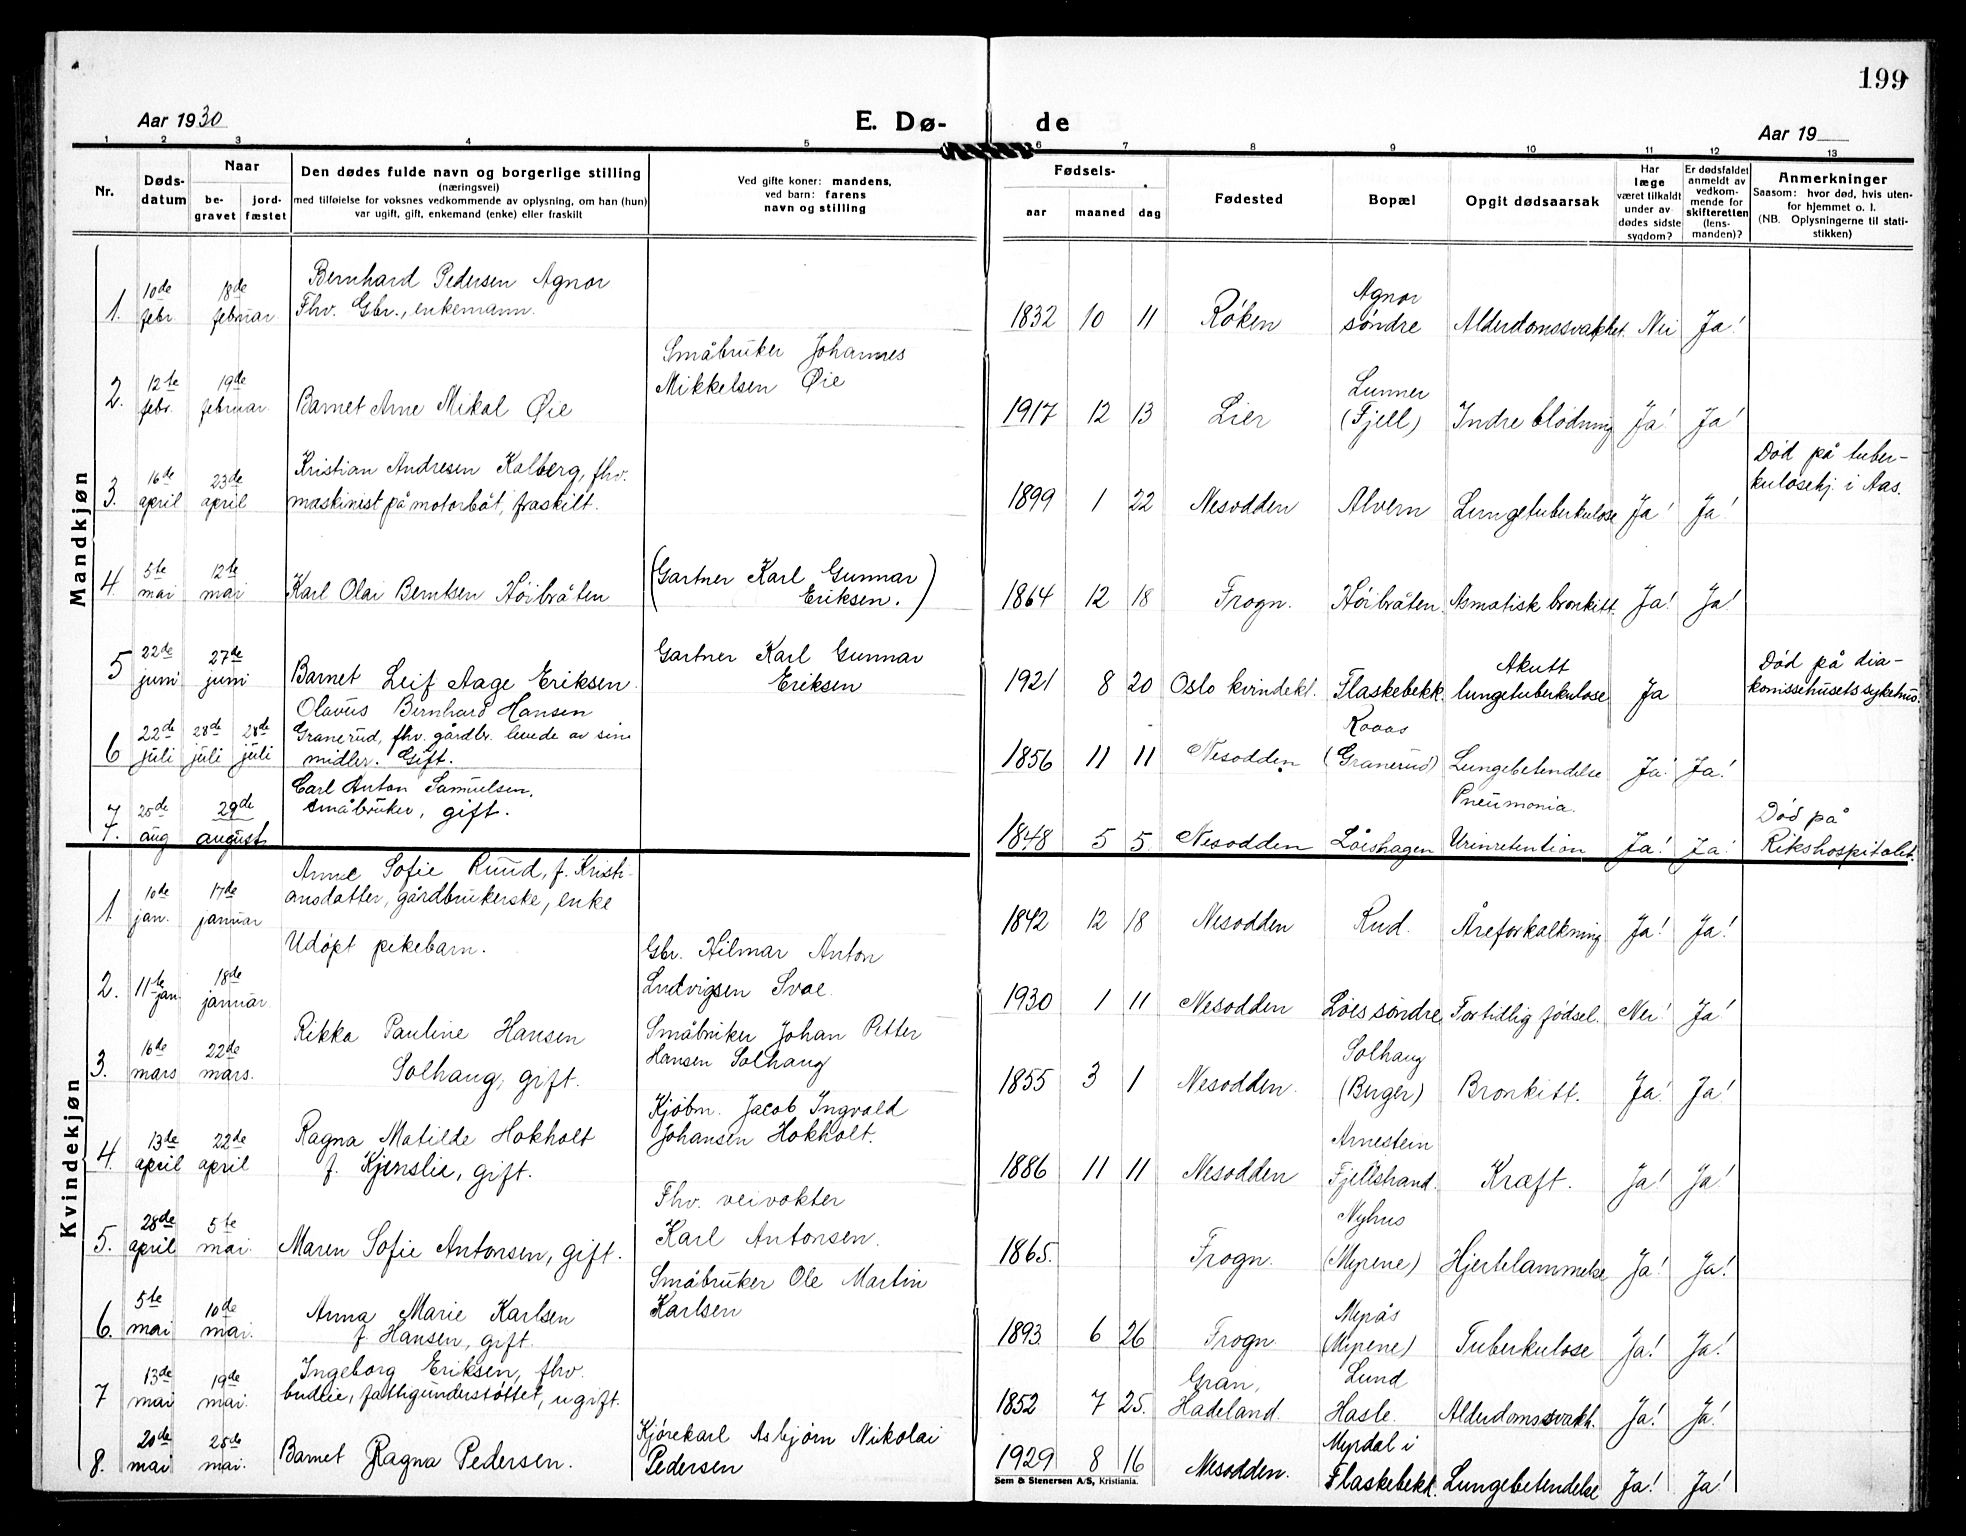 199
Aar 1930
E. Dø-
de
Aar 19
1 2 3 4 5 6 7 8 9 10 11 12 13
Nr.
Døds-
datum
Naar
be-
gravet
jord-
fæstet
Den dødes fulde navn og borgerlige stilling
(næringsvei)
med tilføielse for voksnes vedkommende av oplysning, om han (hun)
var ugift, gift, enkemand (enke) eller fraskilt
Ved gifte koner: mandens,
ved barn: farens
navn og stilling
Fødsels-
aar maaned dag
Fødested
Bopæl
Opgit dødsaarsak
Har
læge
været tilkaldt
under av-
dødes sidste
sygdom?
Er dødsfaldet
anmeldt av
vedkom-
mende for
skifteretten
(lens-
manden)?
Anmerkninger
Saasom: hvor død, hvis uten-
for hjemmet o. l.
(NB. Oplysningerne til stati-
stikken)
Mandkjøn
1. 10de febr. 18de februar
Bernhard Pedersen Agnor
Fhv. Gbr., enkemann.
1832 10 11 Røken
Agnor
søndre
Alderdomssvakhet. Nei Ja!
2. 12te febr. 19de februar
Barnet Arne Mikal Øie
Småbruker Johannes
Mikkelsen Øie
1917 12 13 Lier
Lunner
(Fjell)
Indre blødning Ja! Ja!
3. 16de april 23de april
Kristian Andresen Kalberg, fhv.
maskinist på motorbåt, fraskilt.
1899 1 22 Nesodden Alvern Lungetuberkulose Ja! Ja!
Død på tuber-
kulosehj. i Aas.
4. 5te mai 12te mai
Karl Olai Berntsen Höibråten
(Gartner Karl Gunnar
Eriksen.)
1864 12 18 Frogn. Höibråten. Asmatisk bronkitt. Ja! Ja!
5 22de juni 27de juni
Barnet Leif Aage Eriksen.
Gartner Karl Gunnar
Eriksen
1921 8 20 Oslo kvindekl. Flaskebekk.
Akutt
lungetuberkulose Ja
Død på dia-
konissehusets sykehus.
6 22de juli 28de juli 28de juli
Olavus Bernhard Hansen
Granerud, fhv. gårdbr. levede av sine
midler. Gift.
1856 11 11 Nesodden
Roaas
(Granerud)
Lungebetendelse
Pneumonia.
Ja! Ja!
7 7. 25de aug 29de august
Carl Anton Samuelsen,
småbruker, gift.
1848 5 5. Nesodden Løeshagen Urinretention Ja! Ja!
Død på
Rikshospitalet.
Kvindekjøn
1. 10de jan. 17de januar
Anne Sofie Ruud, f. Kristi-
ansdatter, gårdbrukerske, enke
1842 12 18 Nesodden Rud. Åreforkalkning Ja! Ja!
2. 11te jan. 18de januar
Udöpt pikebarn.
Gbr. Hilmar Anton
Ludvigsen Svae.
1930 1 11 Nesodden Løes søndre Fortidlig fødsel. Nei! Ja!
3. 16de mars 22de mars.
Rikka Pauline Hansen
Solhaug, gift.
Småbruker Johan Petter
Hansen Solhaug
1855 3 1 Nesodden.
Solhaug
(Berger)
Bronkitt. Ja! Ja!
4. 13de april 22de april
Ragna Matilde Hokholt
f. Kjenslie, gift.
Kjøbm. Jacob Ingvald
Johansen Hokholt.
1886 11 11 Nesodden
Arnestein
Fjellstrand.
Kræft. Ja! Ja!
5. 28de april 5te mai.
Maren Sofie Antonsen, gift.
Fhv. veivokter
Karl Antonsen.
1865. Frogn.
Nyhus
(Myrene)
Hjertelammelse Ja! Ja!
6. 5te mai 10de mai.
Anna Marie Karlsen
f. Hansen, gift.
Småbruker Ole Martin
Karlsen
1893 6 26 Frogn.
Myrås
(Myrene)
Tuberkulose Ja! Ja!
7 13de mai 19de mai.
Ingeborg Eriksen, fhv.
budeie, fattigunderstøttet, ugift.
1852 7 25.
Gran,
Hadeland.
Lund
Hasle.
Alderdomssvakh. Ja! Ja!
8. 20de mai 25de mai.
Barnet Ragna Pedersen.
Kjørekarl Asbjørn Nikolai
Pedersen
1929 8 16 Nesodden.
Myrdal i
Flaskebekk.
Lungebetendelse Ja! Ja!
Sem & Stenersen A/S, Kristiania.